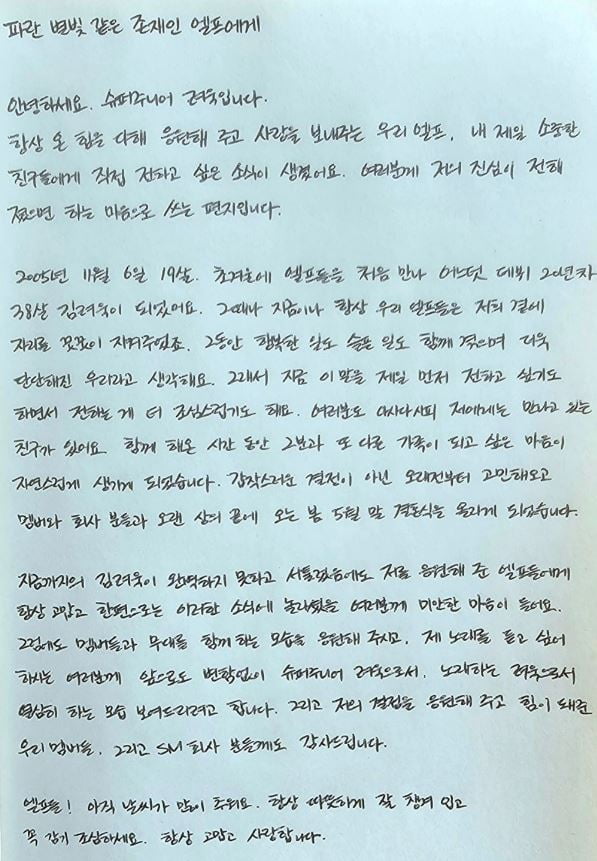 파란 별빛 같은 존재인 엘프에게
안녕하세요. 슈퍼주니어 려욱입니다.
항상 온 힘을 다해 응원해 주고 사랑을 보내주는 우리 엘프, 내 제일 소중한
친구들에게 직접 전하고 싶은 소식이 생겼어요. 여러분께 저의 진심이 전해
졌으면 하는 마음으로 쓰는 편지입니다.
2005년 11월 6일 19살. 초겨울에 엘프들을 처음 만나 어느덧 데뷔 20년차
38살 김려욱이 되었어요. 그때나 지금이나 항상 우리 엘프들은 저희 곁에
자리를 꿋꿋이 지켜주었죠. 그동안 행복한 일도 슬픈 일도 함께 겪으며 더욱
단단해진 우리라고 생각해요. 그래서 지금 이 말을 제일 먼저 전하고 싶기도
하면서 전하는 게 더 조심스럽기도 해요. 여러분도 아시다시피 저에게는 만나고 있는
친구가 있어요. 함께 해온 시간 동안 그분과 또 다른 가족이 되고 싶은 마음이
자연스럽게 생기게 되었습니다. 갑작스러운 결정이 아닌 오래전부터 고민해오고
멤버와 회사 분들과 오랜 상의 끝에 오는 봄 5월 말 결혼식을 올리게 되었습니다.
지금까지의 김려욱이 완벽하지 못하고 서툴렀음에도 저를 응원해 준 엘프들에게
항상 고맙고 한편으로는 이러한 소식에 놀라웠을 여러분께 미안한 마음이 들어요.
그럼에도 멤버들과 무대를 함께 하는 모습을 응원해 주시고, 제 노래를 듣고 싶어
하시는 여러분께 앞으로도 변함없이 슈퍼주니어 려욱으로서, 노래하는 려욱으로서
열심히 하는 모습 보여드리려고 합니다. 그리고 저의 결정을 응원해 주고 힘이 돼준
우리 멤버들, 그리고 SM 회사 분들께도 감사드립니다.
엘프들! 아직 날씨가 많이 추워요. 항상 따뜻하게 잘 챙겨 입고
꼭 감기 조심하세요. 항상 고맙고 사랑합니다.